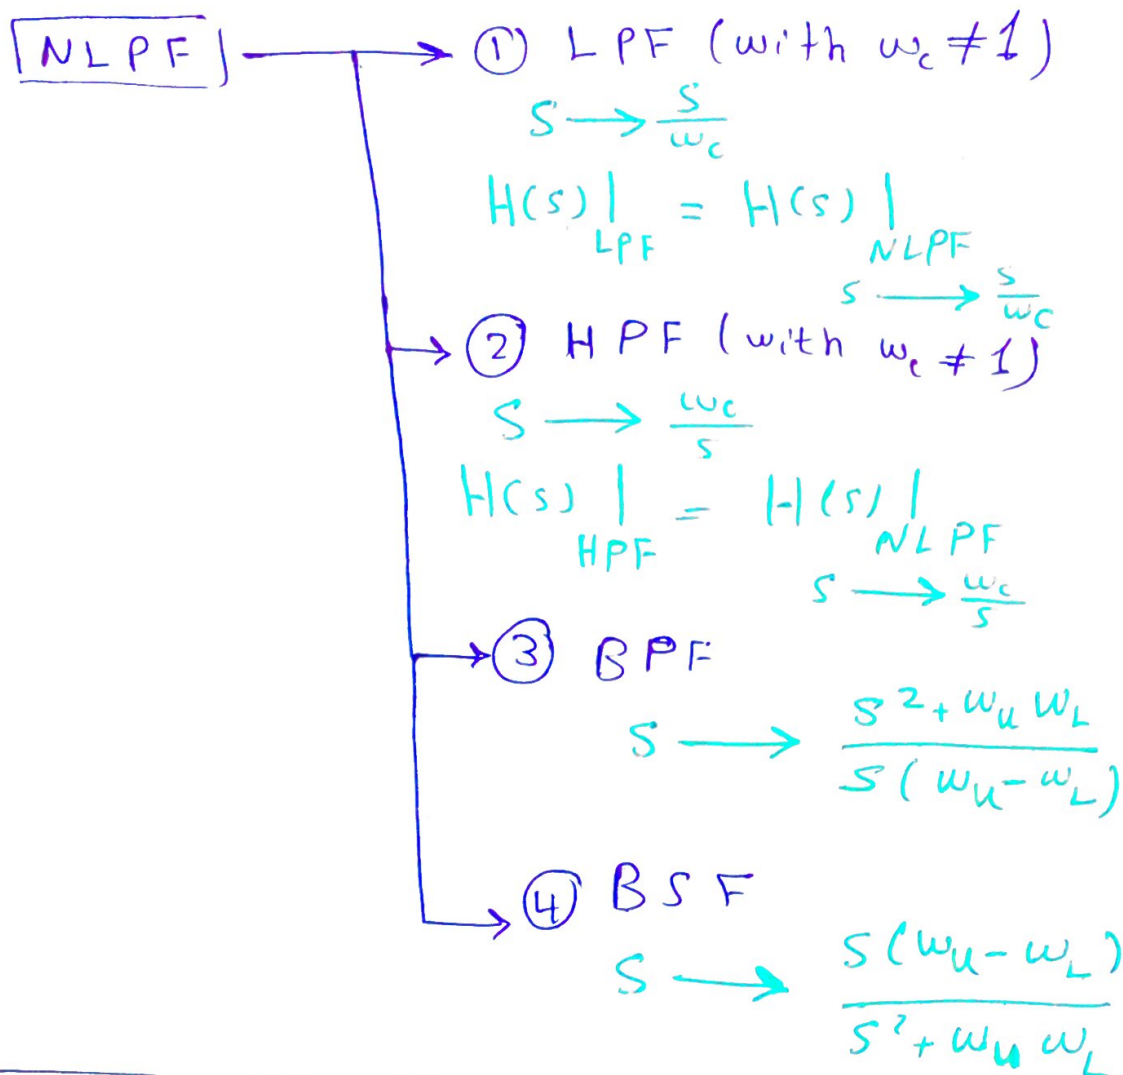 NLPF → ① LPF (with ω_c ≠ 1)
S → S/ω_c
H(s)|_LPF = H(s)|_NLPF
s → s/ω_c
② HPF (with ω_c ≠ 1)
S → ω_c/s
H(s)|_HPF = H(s)|_NLPF
s → ω_c/s
③ BPF
S → (S² + ω_u ω_L)/(S(ω_u - ω_L))
④ BSF
S → (S(ω_u - ω_L))/(S² + ω_u ω_L)